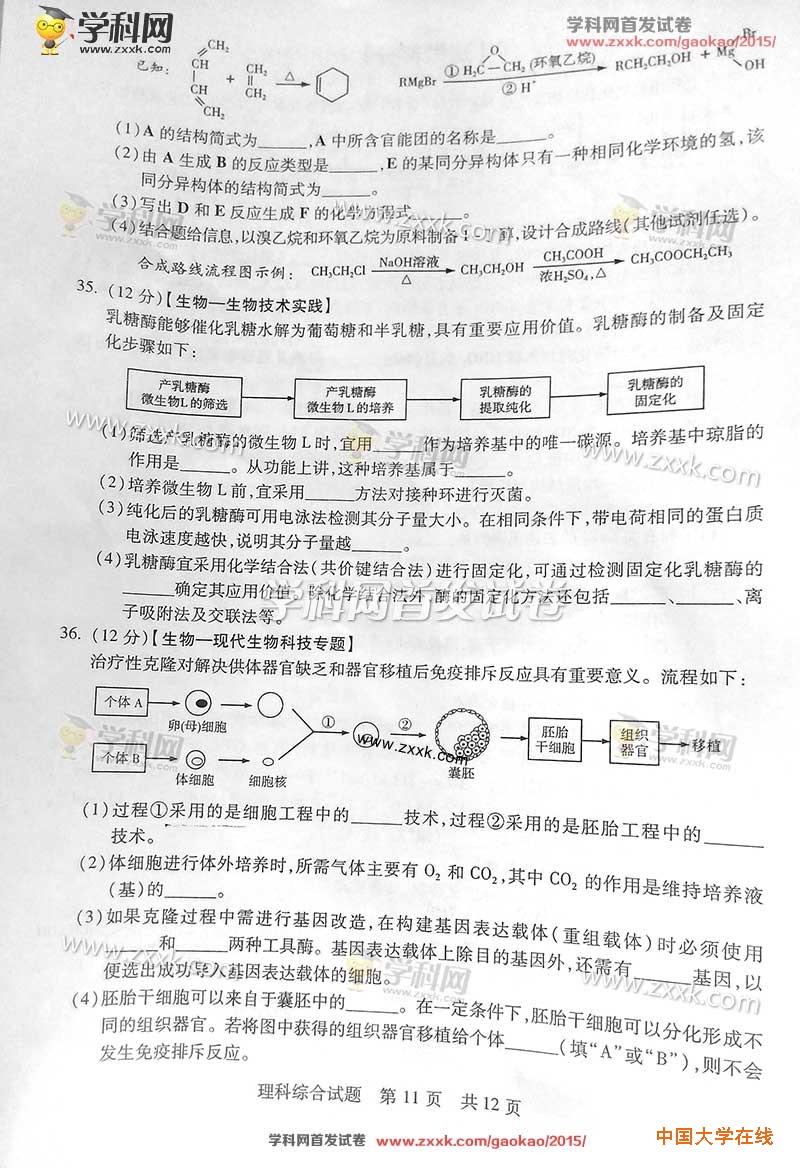 学科网
www.zxxk.com
学科网首发试卷
www.zxxk.com/gaokao/2015/
已知: CH₂ CH CH CH₂ + CH₂ CH₂ △ RMgBr ① H₂C CH₂ (环氧乙烷) O ② H⁺ RCH₂CH₂OH + Mg Br OH
(1)A 的结构简式为______,A 中所含官能团的名称是______。
(2)由 A 生成 B 的反应类型是______,E 的某同分异构体只有一种相同化学环境的氢,该
同分异构体的结构简式为______。
(3)写出 D 和 E 反应生成 F 的化学方程式______。
(4)结合题给信息,以溴乙烷和环氧乙烷为原料制备1-丁醇,设计合成路线(其他试剂任选)。
合成路线流程图示例: CH₃CH₂Cl NaOH溶液 △ CH₃CH₂OH CH₃COOH 浓H₂SO₄,△ CH₃COOCH₂CH₃
35. (12 分)【生物—生物技术实践】
乳糖酶能够催化乳糖水解为葡萄糖和半乳糖,具有重要应用价值。乳糖酶的制备及固定
化步骤如下:
产乳糖酶 微生物L的筛选 产乳糖酶 微生物L的培养 乳糖酶的 提取纯化 乳糖酶的 固定化
(1)筛选产乳糖酶的微生物 L 时,宜用______作为培养基中的唯一碳源。培养基中琼脂的
作用是______。从功能上讲,这种培养基属于______。
(2)培养微生物 L 前,宜采用______方法对接种环进行灭菌。
(3)纯化后的乳糖酶可用电泳法检测其分子量大小。在相同条件下,带电荷相同的蛋白质
电泳速度越快,说明其分子量越______。
(4)乳糖酶宜采用化学结合法(共价键结合法)进行固定化,可通过检测固定化乳糖酶的
______确定其应用价值。除化学结合法外,酶的固定化方法还包括______、______、离
子吸附法及交联法等。
36. (12 分)【生物—现代生物科技专题】
治疗性克隆对解决供体器官缺乏和器官移植后免疫排斥反应具有重要意义。流程如下:
个体 A 卵(母)细胞 ① ② 囊胚 胚胎 干细胞 组织 器官 移植
个体 B 体细胞 细胞核
(1)过程①采用的是细胞工程中的______技术,过程②采用的是胚胎工程中的______
技术。
(2)体细胞进行体外培养时,所需气体主要有 O₂ 和 CO₂,其中 CO₂ 的作用是维持培养液
(基)的______。
(3)如果克隆过程中需进行基因改造,在构建基因表达载体(重组载体)时必须使用
______和______两种工具酶。基因表达载体上除目的基因外,还需有______基因,以
便选出成功导入基因表达载体的细胞。
(4)胚胎干细胞可以来自于囊胚中的______。在一定条件下,胚胎干细胞可以分化形成不
同的组织器官。若将图中获得的组织器官移植给个体______(填“A”或“B”),则不会
发生免疫排斥反应。
理科综合试题 第 11 页 共 12 页
学科网首发试卷 www.zxxk.com/gaokao/2015/
中国大学在线